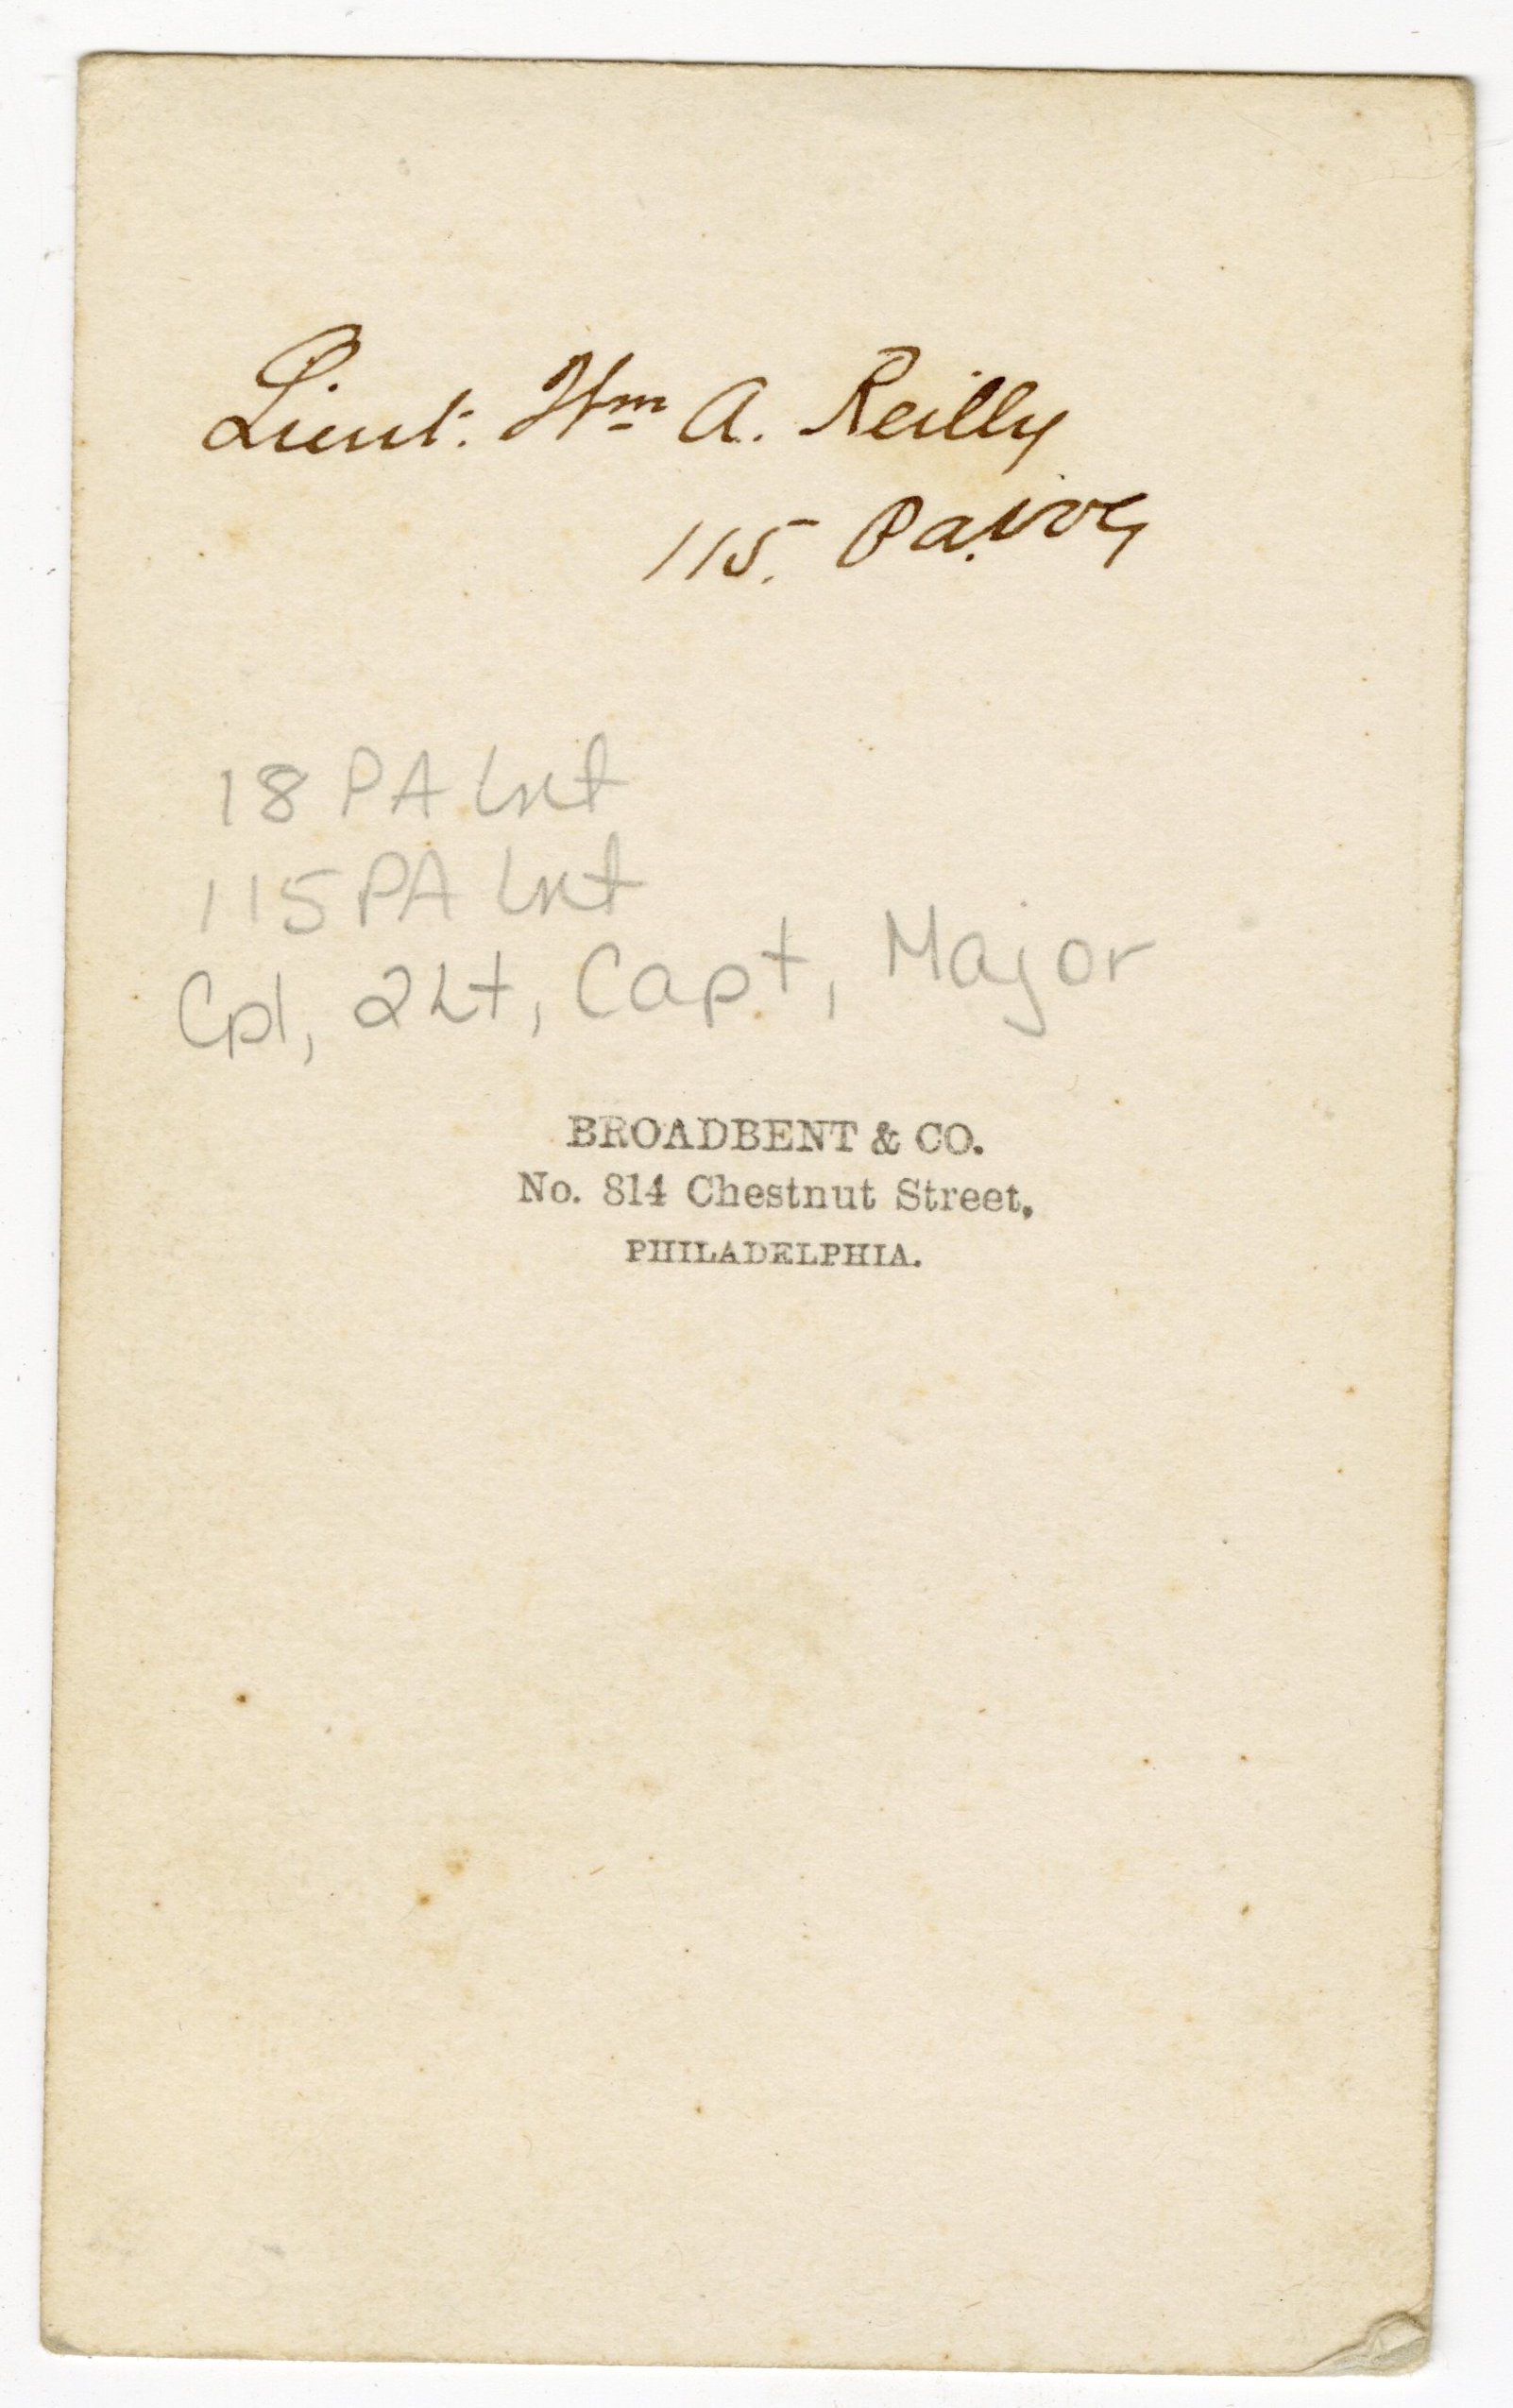 Lieut. Wm A. Reilly
115. Pa. Vol,
18 PA Inf
115 PA Inf
Cpl, 2Lt, Capt, Major
BROADBENT & CO.
No. 814 Chestnut Street,
PHILADELPHIA.